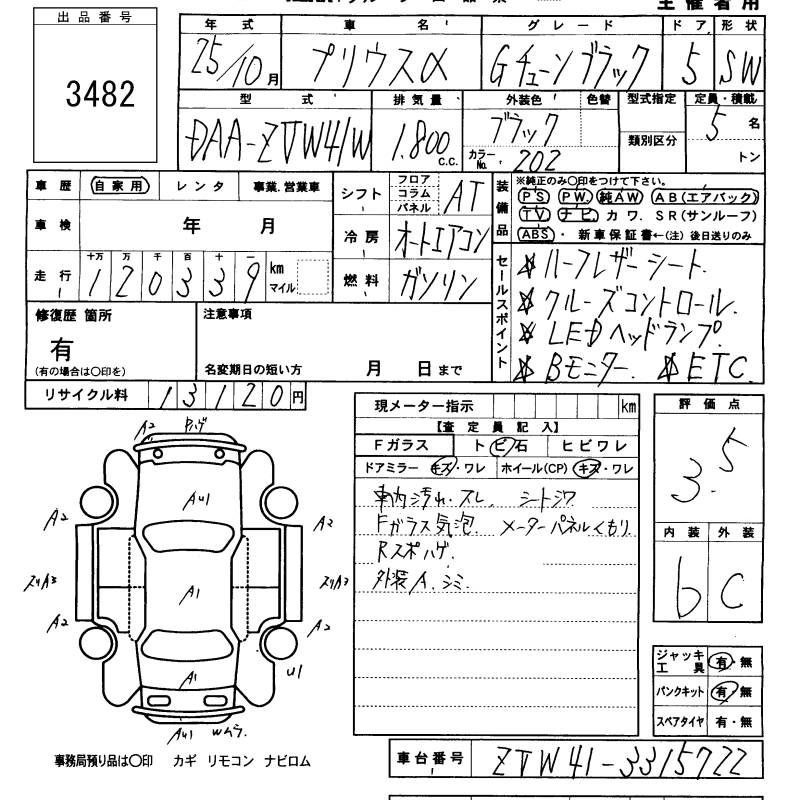 主催者用
出品番号
3482
年式 車名 グレード ドア 形状
25/10月 プリウスα Gチューンブラック 5 SW
型式 排気量 外装色 色替 型式指定 定員・積載
DAA-ZVW41W 1.800 c.c. ブラック 類別区分 5名
カラーNo. 202 トン
車歴 自家用 レンタ 事業.営業車
車検 年 月
走行 十万 万 千 百 十 一
1 2 0 3 3 9 km マイル
シフト フロア コラム パネル AT
冷房 オートエアコン
燃料 ガソリン
装備品 ※純正のみ〇印をつけて下さい。
PS PW. 純AW AB(エアバック)
TV ナビ カワ. SR(サンルーフ)
ABS ・ 新車保証書←(注)後日送りのみ
セールスポイント
☆ハーフレザーシート.
☆クルーズコントロール.
☆LEDヘッドランプ.
☆Bモニター. ☆ETC.
修復歴 箇所
有
(有の場合は〇印を)
注意事項
名変期日の短い方 月 日まで
リサイクル料 13120円
A2 Pハゲ
AU1
A2 A2
ズリA3 A1 ズリA3
A2 A2
A1 U1
AU1 Wムラ.
事務局預り品は〇印 カギ リモコン ナビロム
現メーター指示 km
【査定員記入】
Fガラス トビ石 ヒビワレ
ドアミラー キズ・ワレ ホイール(CP) キズ・ワレ
車内汚れ.スレ. シートシワ
Fガラス気泡. メーターパネルくもり.
Rスポハゲ.
外装A.シミ.
評価点
3.5
内装 外装
b C
ジャッキ工具 有・無
パンクキット 有・無
スペアタイヤ 有・無
車台番号 ZVW41-3315722